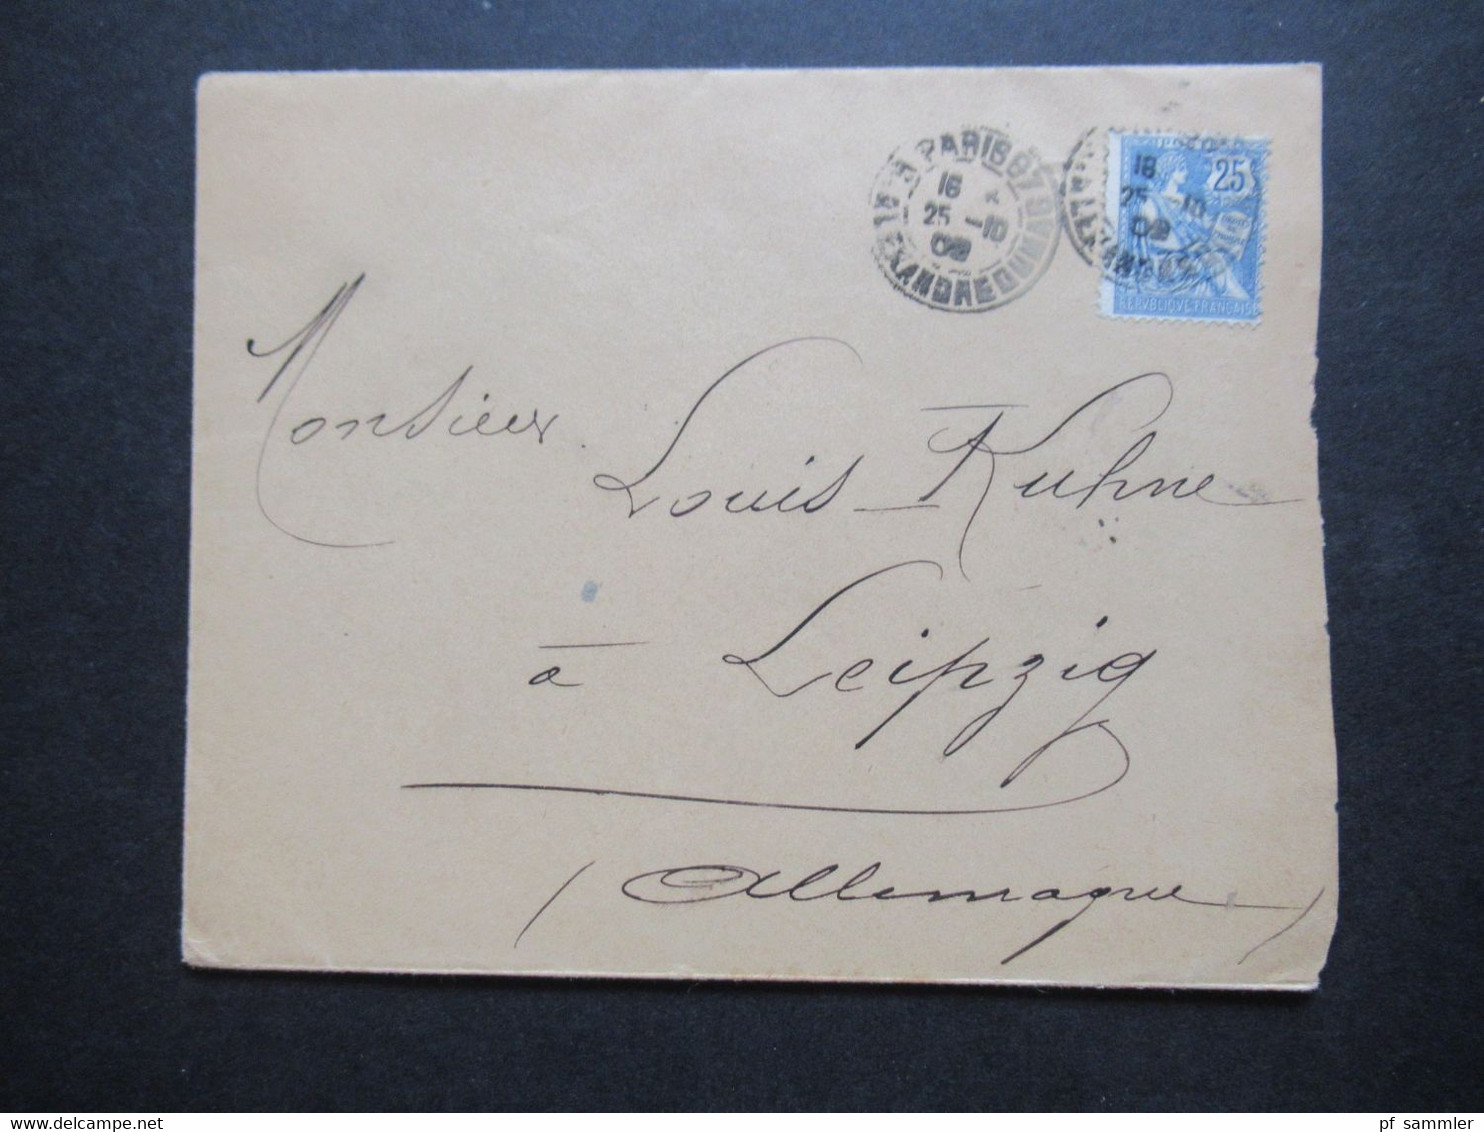 PARIS 67
16
25 -10
02
R. ALEXANDRE DUMAS
18
25 -10
02
25
REPUBLIQUE FRANÇAISE
Monsieur Louis Kuhne
à Leipzig
(Allemagne)
www.delcampe.net
pf_sammler